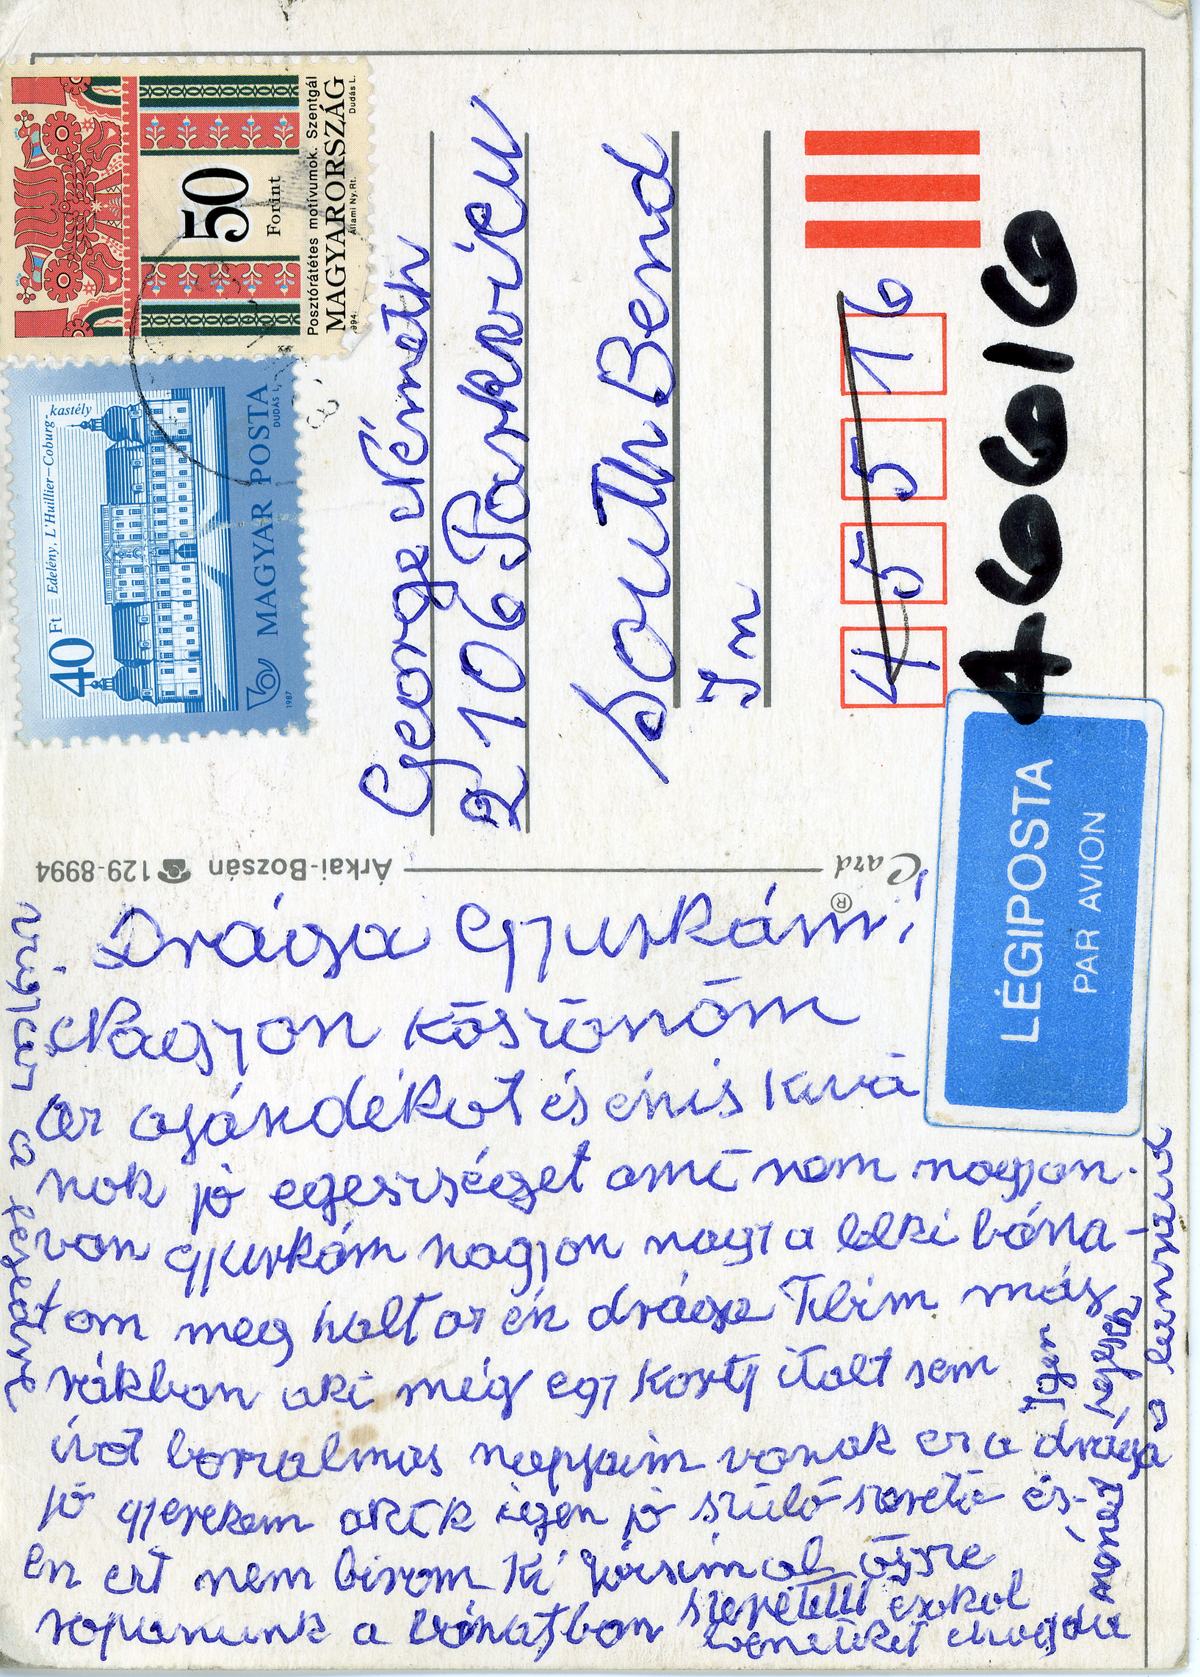 Posztórátétes motívumok. Szentgál
MAGYARORSZÁG
Állami Ny. Rt.
Dudás L.
50
Forint
40 Ft
Edelény, L'Huillier–Coburg-kastély
MAGYAR POSTA
DUDÁS L.
1987
George Németh
2106 Parkview
South Bend
In
455 16
46616
LÉGIPOSTA
PAR AVION
Árkai-Bozsán ☎ 129-8994
Card
®
Drága Gyurkám!
Nagyon köszönöm
az ajándékot és énis kivá
nok jó egeszséget ami nem nagyon
van Gyurkám nagyon nagy a lelki bána-
tom meg halt az én drága Tibim máj
rákban aki még egy korty italt sem
ivot borzalmas napjaim vanak ez a drága
jó gyerekem akik igen jó szülö szerető és-
én ezt nem birom ki Józsimal össze
ropanunk a bánatban szeretettel csokol
beneteket Magda
Igen
a